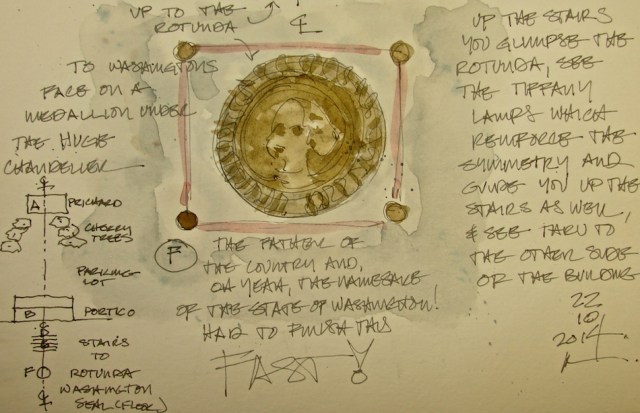 UP TO THE
ROTUNDA
℄
TO WASHINGTONS
FACE ON A
MEDALLION UNDER
THE HUGE
CHANDELIER
A PRICHARD
CHERRY
TREES
PARKING
LOT
B PORTICO
STAIRS
TO
F ROTUNDA
WASHINGTON
SEAL (FLOOR)
℄
F
THE FATHER OF
THE COUNTRY AND,
OH YEAH, THE NAMESAKE
OF THE STATE OF WASHINGTON!
HAD TO FINISH THIS
FAST!
UP THE STAIRS
YOU GLIMPSE THE
ROTUNDA, SEE
THE TIFFANY
LAMPS WHICH
REINFORCE THE
SYMMETRY AND
GUIDE YOU UP THE
STAIRS AS WELL,
& SEE THRU TO
THE OTHER SIDE
OF THE BUILDING
22
10
2014